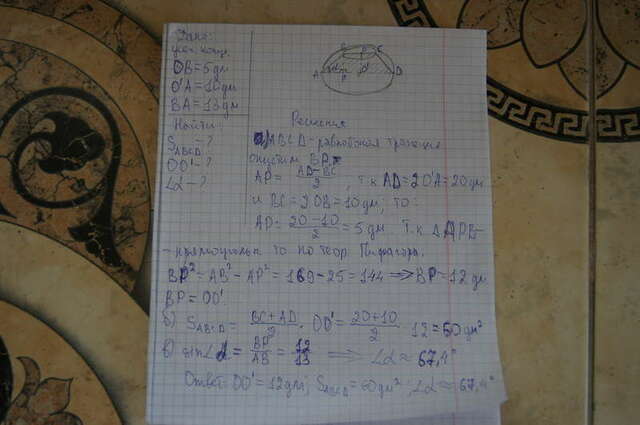 Дано:
усеч. конус
OB=5дм
O'A=10дм
BA=13дм
Найти:
S_ABCD -?
OO' -?
∠α -?
B C
A D
Решение
ABCD - равнобокая трапеция
опустим BP
AP = (AD-BC)/2, т.к AD=2O'A=20дм
и BC=2OB=10дм, то:
AP = (20-10)/2 = 5дм. Т.к ΔAPB-
-прямоугольн то по теор. Пифагора.
BP²=AB²-AP²=169-25=144 ⟹ BP=12дм
BP=OO'.
б) S_ABCD = (BC+AD)/2 · OO' = (20+10)/2 · 12 = 60дм²
в) sin∠α = BP/AB = 12/13 ⟹ ∠α≈67,4°
Ответ: OO'=12дм; S_ABCD=60дм²; ∠α≈67,4°